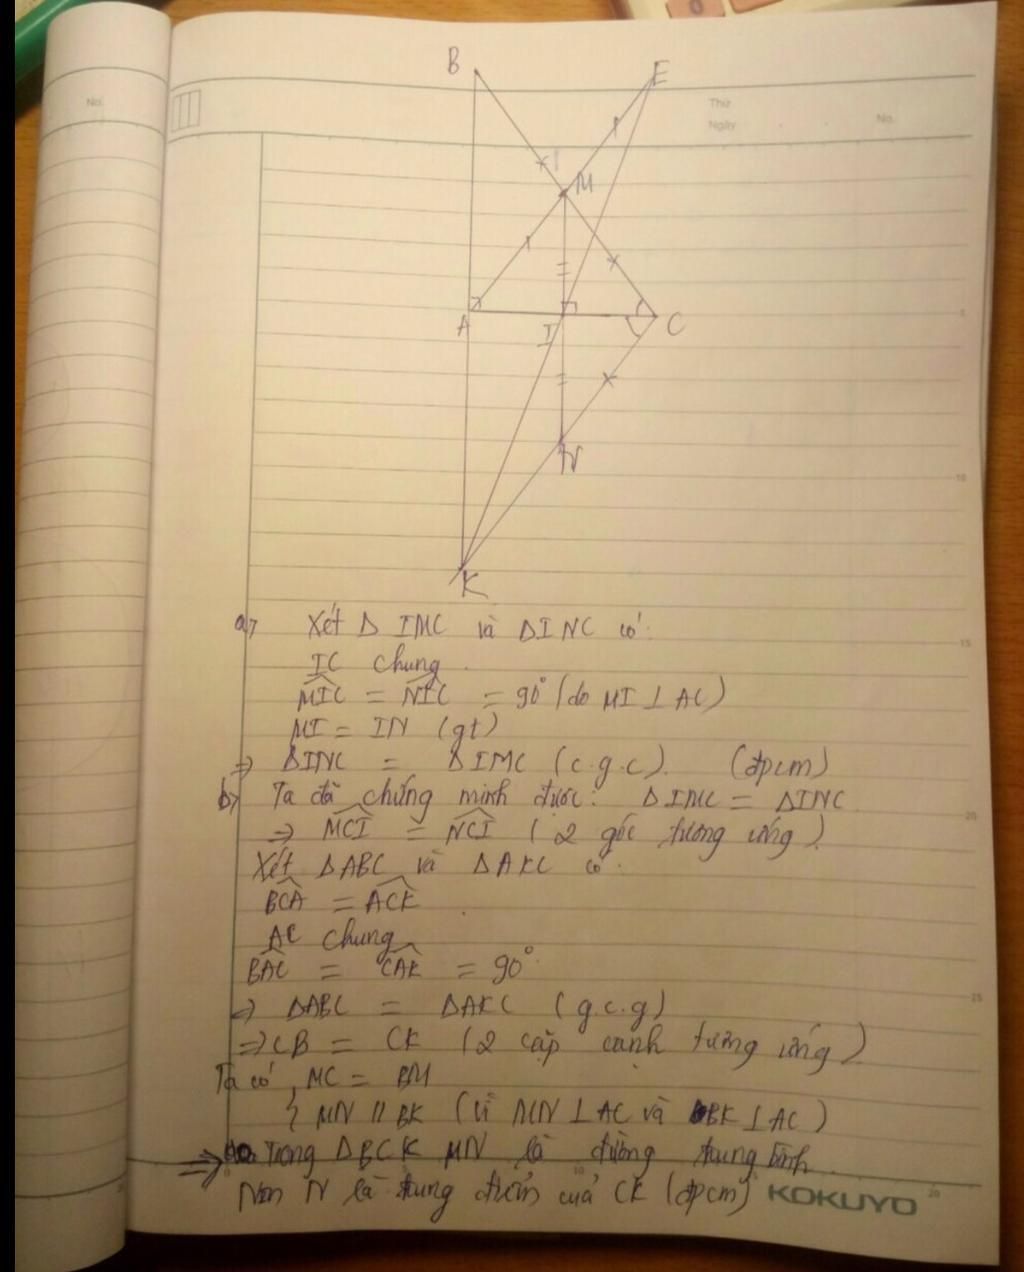 No.
Thứ
Ngày
No.
B
E
M
A
I
C
N
K
a, Xét Δ IMC và ΔINC có:
IC chung.
MIC = NIC = 90° (do MI ⊥ AC)
MI = IN (gt)
⇒ ΔINC = ΔIMC (c.g.c). (đpcm)
b, Ta đã chứng minh được: ΔIMC = ΔINC
⇒ MCI = NCI (2 góc tương ứng)
Xét ΔABC và ΔAKC có:
BCA = ACK
AC chung
BAC = CAK = 90°
⇒ ΔABC = ΔAKC (g.c.g)
⇒ CB = CK (2 cặp cạnh tương ứng)
Ta có { MC = BM
MN // BK (Vì MN ⊥ AC và BK ⊥ AC)
⇒ Trong ΔBCK MN là đường trung bình
Nên N là trung điểm của CK (đpcm)
KOKUYO
5
10
15
20
25
0
5
10
20